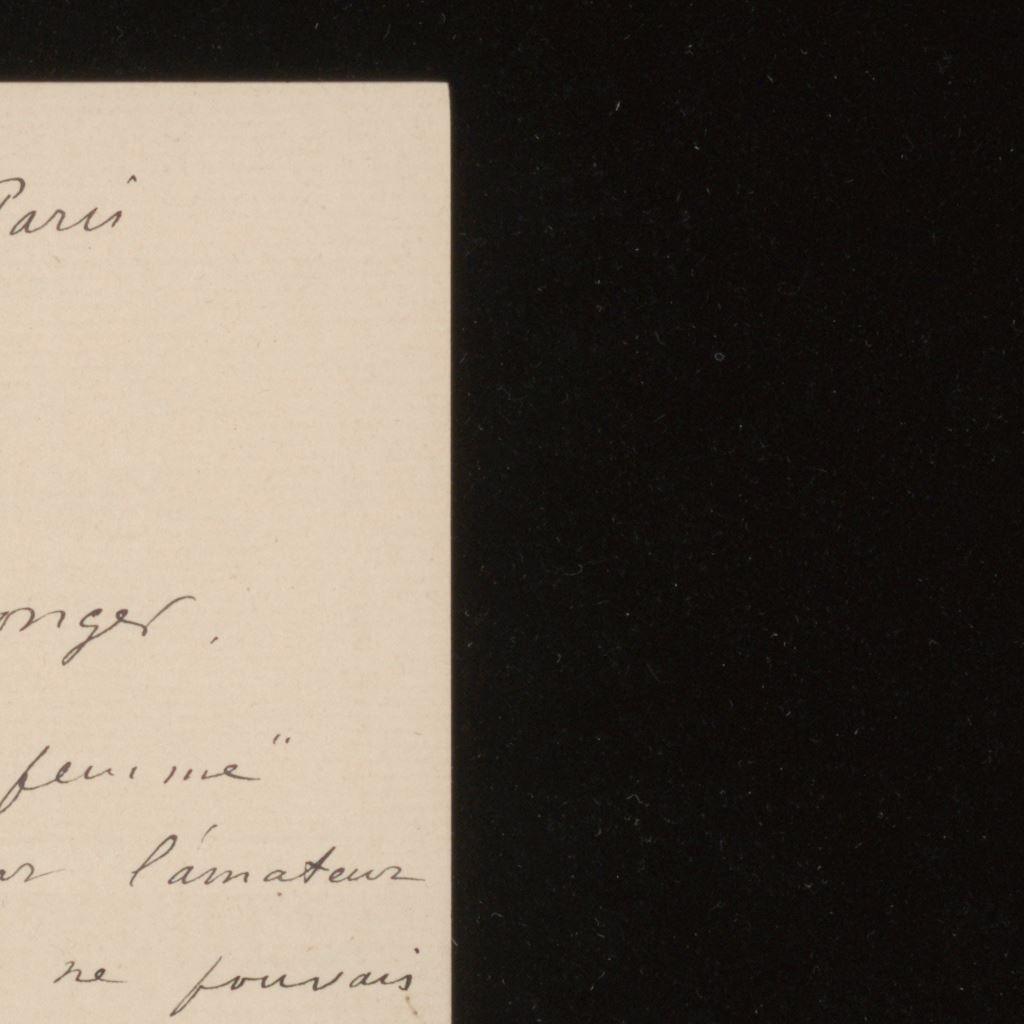 Paris
onger.
femme"
l'amateur
ne pouvais